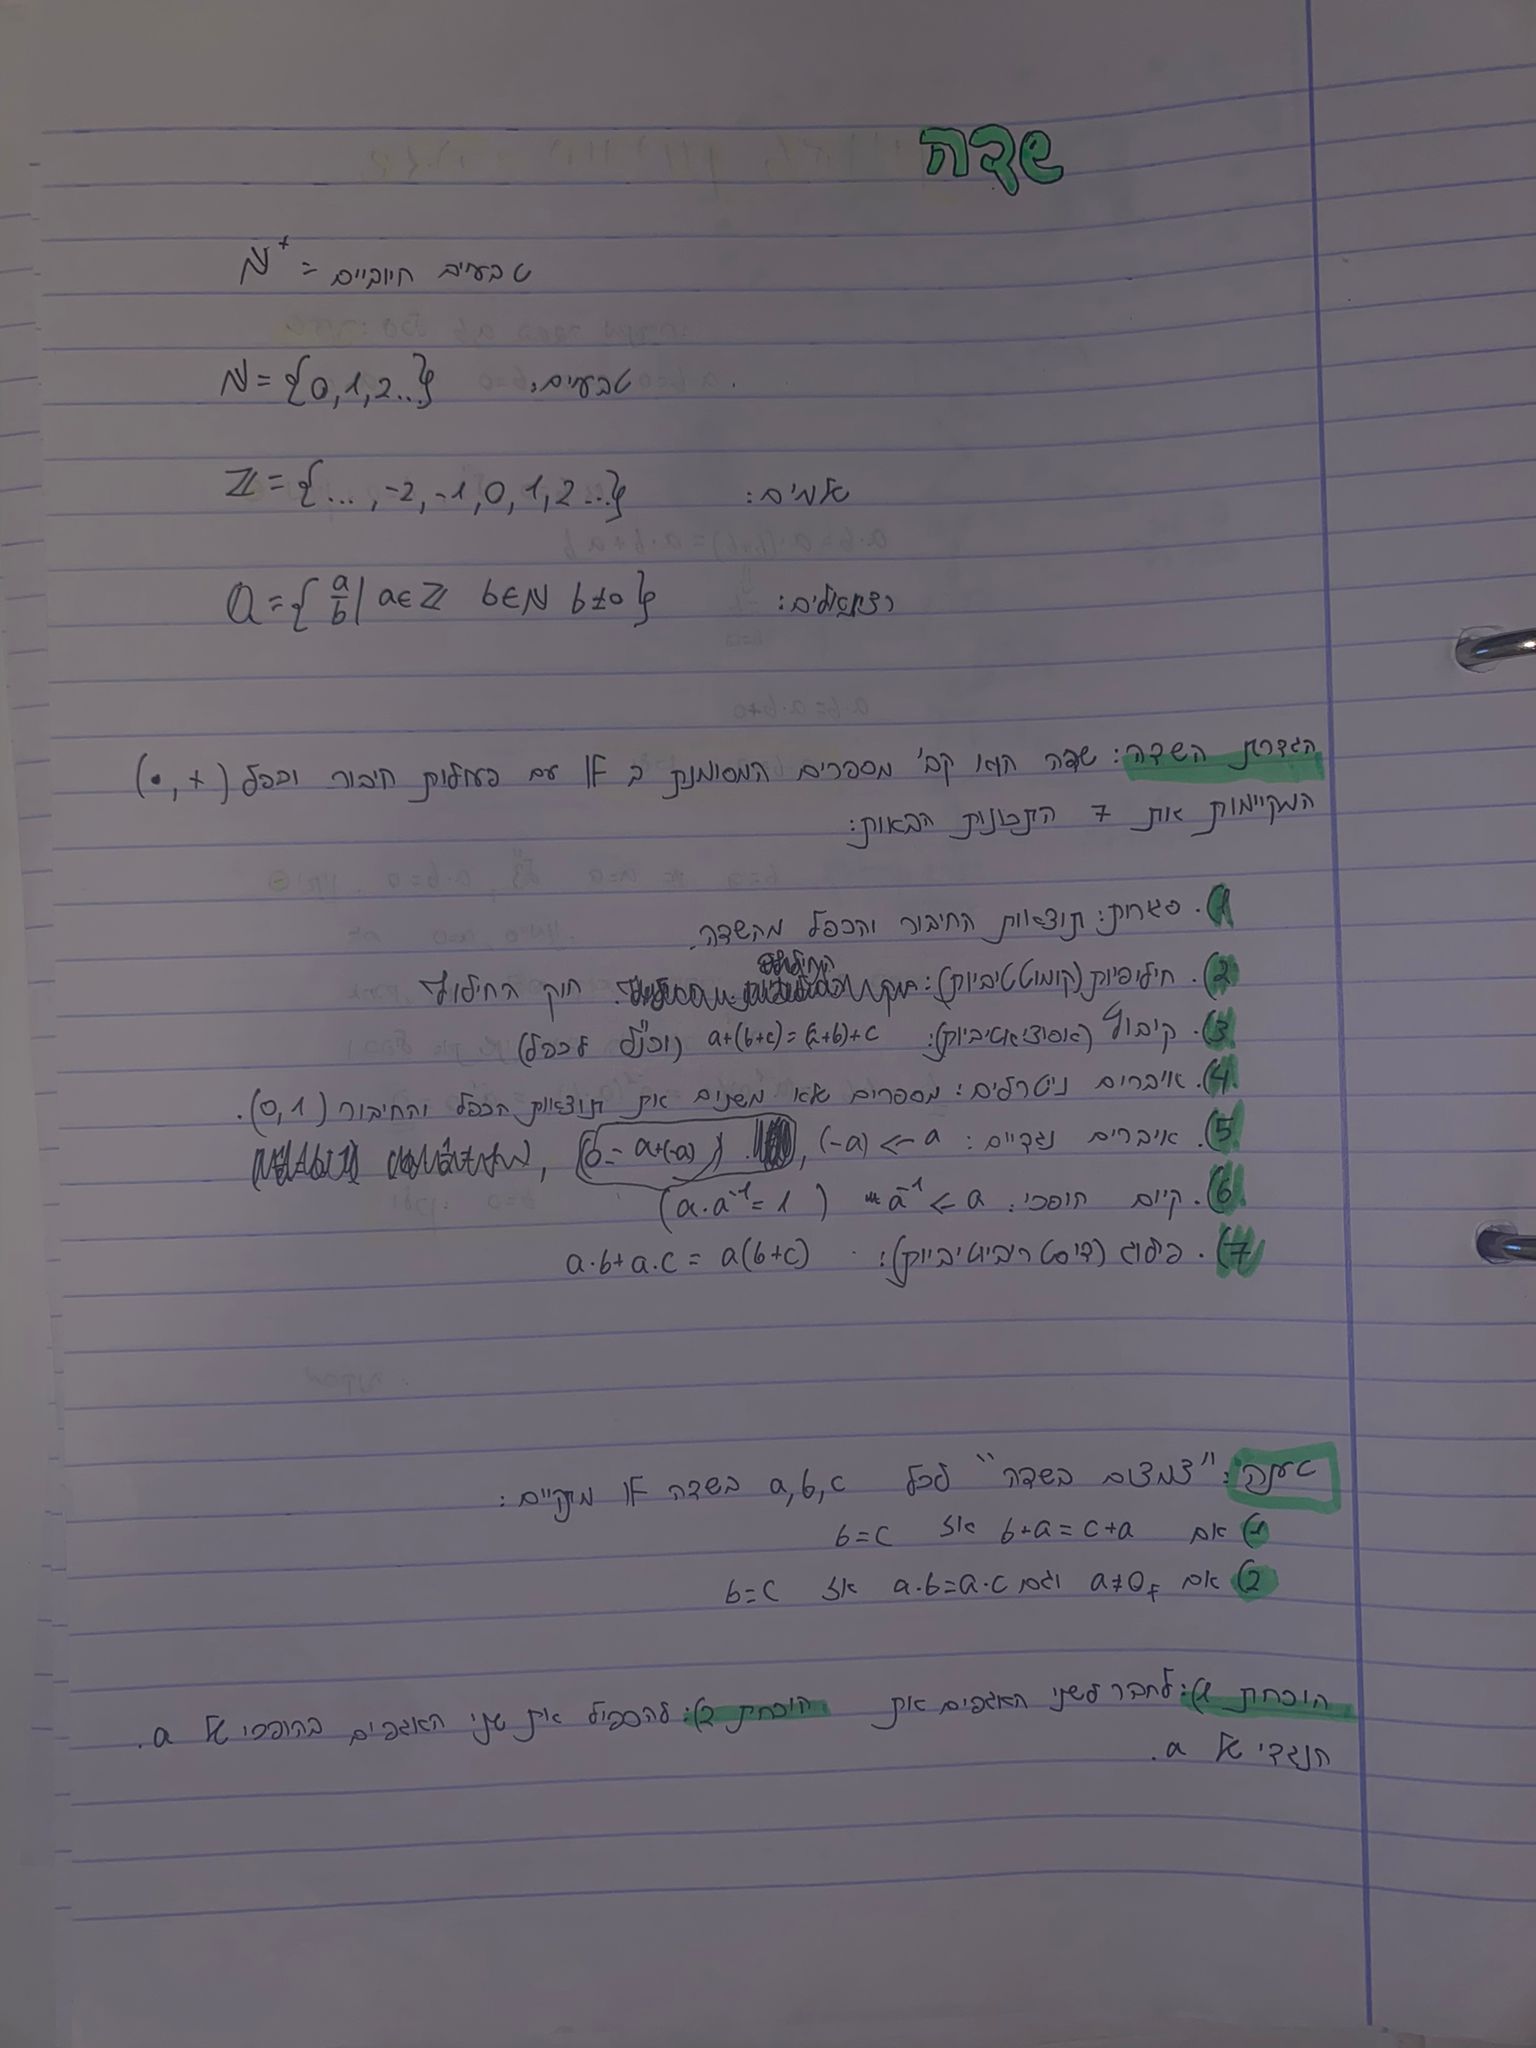 שדה
N⁺ = טבעיים חיוביים
N = {0,1,2...} טבעיים:
ℤ = {..., -2, -1, 0, 1, 2...} שלמים:
Q = { a/b | a∈ℤ b∈N b≠0 } רציונאלים:
הגדרת השדה: שדה הוא קב' מספרים המסומנת ב F עם פעולות חיבור וכפל (+, •)
המקיימות את 7 התכונות הבאות:
1). סגרות: תוצאות החיבור והכפל מהשדה.
2). חילופיות (קומוטטיביות): חוק החילוף
3). קיבוץ (אסוציאטיביות): a+(b+c)=(a+b)+c (וכנ"ל לכפל)
4). איברים ניטרלים: מספרים שלא משנים את תוצאות הכפל והחיבור (0,1).
5). איברים נגדיים: a → (-a), 0 = a+(-a)
6). קיום הופכי: a ⇒ a⁻¹ (a·a⁻¹=1)
7). פילוג (דיסטריביוטיביות): a·b+a·c = a(b+c)
טענה: "צמצום בשדה" לכל a,b,c בשדה F מתקיים:
1) אם b+a=c+a אז b=c
2) אם a≠0F וגם a·b=a·c אז b=c
הוכחת 1): לחבר לשני האגפים את הוכחת 2): להכפיל את שני האגפים בהופכי של a.
הנגדי של a.